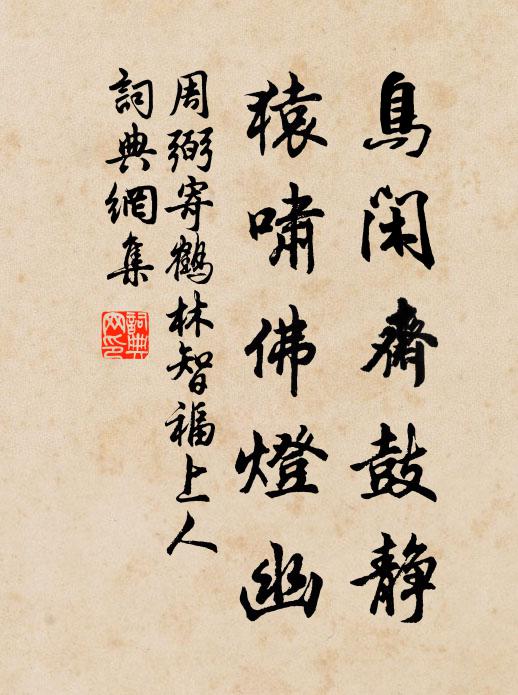 鳥閑齋鼓静
猿嘯佛燈幽
周弼寄鶴林智福上人
詞典網集
詞典
网印